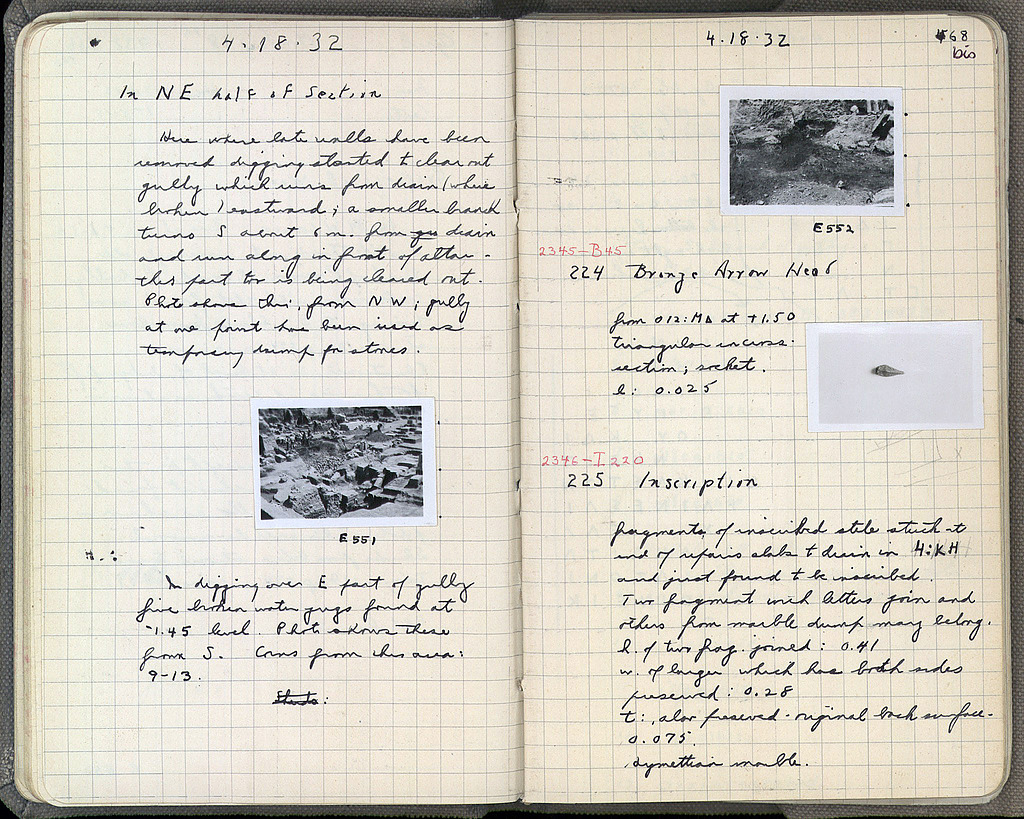 4.18.32
In NE half of Section
Here where late walls have been
removed digging started to clear out
gully which runs from drain (where
broken) eastward; a smaller branch
turns S about 6 m. from drain
and runs along in front of altar -
this part too is being cleared out.
Photo shows this, from NW; gully
at one point has been used as
temporary dump for stones.
E551
In digging over E part of gully
five broken water jugs found at
-1.45 level. Photo shows these
from S. Coins from this area:
9-13.
4.18.32
468
bis
E552
2345-B45
224 Bronze Arrow Head
from 012:MΔ at +1.50
triangular in cross-
section; socket.
l: 0.025
2346-I 220
225 Inscription
fragments of inscribed stele stuck at
end of repairs slabs to drain in 4:KH
and just found to be inscribed.
Two fragment with letters join and
others from marble dump may belong.
l. of two frag. joined: 0.41
w. of larger which has both sides
preserved: 0.28
t:, also preserved - original back surface-
0.075.
Hymettian marble.